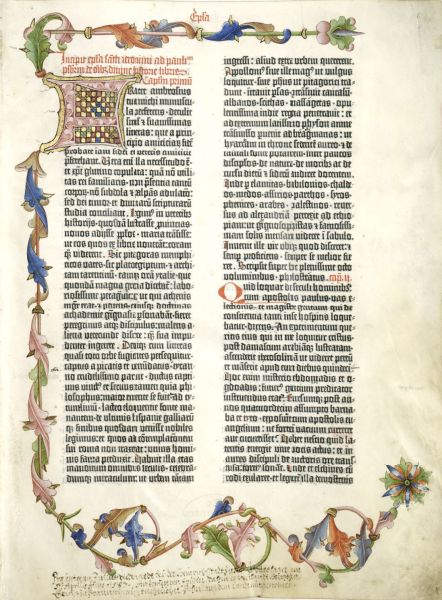 Epsa
Incipit epsa sancti iheronimi ad paulinu
Capitulū primū
Frater ambrosius
tua michi munuscu-
la perferens · detulit
sil et suauissimas
lrās: que a prin-
cipio amicicia fidē
probate iam fidei et veteris amicicie
Vera eni illa necessitudo ē
et xpi glutino copulata: quā nō utili-
tas rei familiaris · nō presentia tantū
corporū · nō subdola et palpās adulacō ·
sed dei timor · et diuinarū scripturarū
studia conciliant. Legim⁹ in veteribs
historijs · quosdā lustrasse puincias ·
nouos adisse pplos · maria trāsisse:
ut eos quos ex libris nouerāt: corā
q̄ viderent. Sic pitagoras memphi-
ticos vates · sic plato egiptū · et archi-
tam tarentinū · eamq; orā ytalie · que
quondā magna grecia dicebat: labo-
riosissime peragrauit: et ut qui athenis
mgr̄ erat · et potens · cuiusq; doctrinas
achademie gignasia psonabāt · fieret
peregrinus atq; discipulus: malens a-
liena verecunde discere: q̄ sua impu-
denter ingerere. Deniq; cum litteras
quasi toto orbe fugientes persequit̄ ·
captus a piratis et venūdatus · tyran-
no crudelissimo paruit · ductus captiu⁹
vinct⁹ et seruus · tamen quia phi-
losophus: maior emente se fuit · ad ty-
tumliuiu · lacteo eloquentie fonte ma-
nantem · de vltimis hispanie galliarūq;
finibus · quosdam venisse nobiles
legimus: et quos ad cōtemplacōnem
sui roma non traxerat: vnius homi-
nis fama perduxit. Habuit illa etas
inauditum omnibs seculis · celebrā-
dumq; miraculum: ut urbem tātam
ingressi: aliud extra urbem quererent.
Apollonius · siue ille mag⁹ ut vulgus
loquitur · siue phus · ut pitagorici tra-
dunt · intrauit psas · ptrāsiuit caucasū ·
albanos · scithas · massagetas · opu-
lentissima indie regna penetrauit: et
ad extremum latissimo physon amne
trāsmisso puenit ad bragmanas: ut
hyarcam in throno sedentē aureo · et de
tantali fonte potantem · inter paucos
discipulos · de natura · de moribs ac de
cursu dierū et siderū audiret docentem.
Inde p elamitas · babilonios · chalde-
os · medos · assirios · parthos · syros ·
phenices · arabes · palestinos · reuer-
sus ad alexandriā · perrexit ad ethio-
piam: ut gignosophistas · et famosissi-
mam solis mensam videret ī sabulo.
Inuenit ille vir ubiq; quod disceret: et
semp proficiens · semper se melior fie-
ret. Scripsit super hoc plenissime octo
voluminibus · phylostratus. Cap. II.
Quid loquar de seculi hominibus:
cum apostolus paulus · vas e-
lectionis · et magister gentium · qui de
consciencia tanti in se hospitis loque-
batur · dicens. An experimentum que-
ritis eius qui in me loquitur cristus:
post damascum arabiāq; lustratam ·
ascenderit iherosolimā ut videret petrū
et māserit apud eum diebus quindeci.
Hoc eni misterio ebdomadis et og-
doadis: futur⁹ gentium predicator
instruendus erat. Rursumq; post an-
nos quatuordecim assumpto barna-
ba et tyto · exposuit cum apostolis eu-
angelium: ne forte ī vacuum curreret
aut cucurrisset. Habet nescio quid la-
tentis energie viue vocis actus: et in
aures discipuli de auctoris ore trans-
fusa: fortius sonat. Unde et eschines cū
rodi exularet · et legeretur illa demostenis